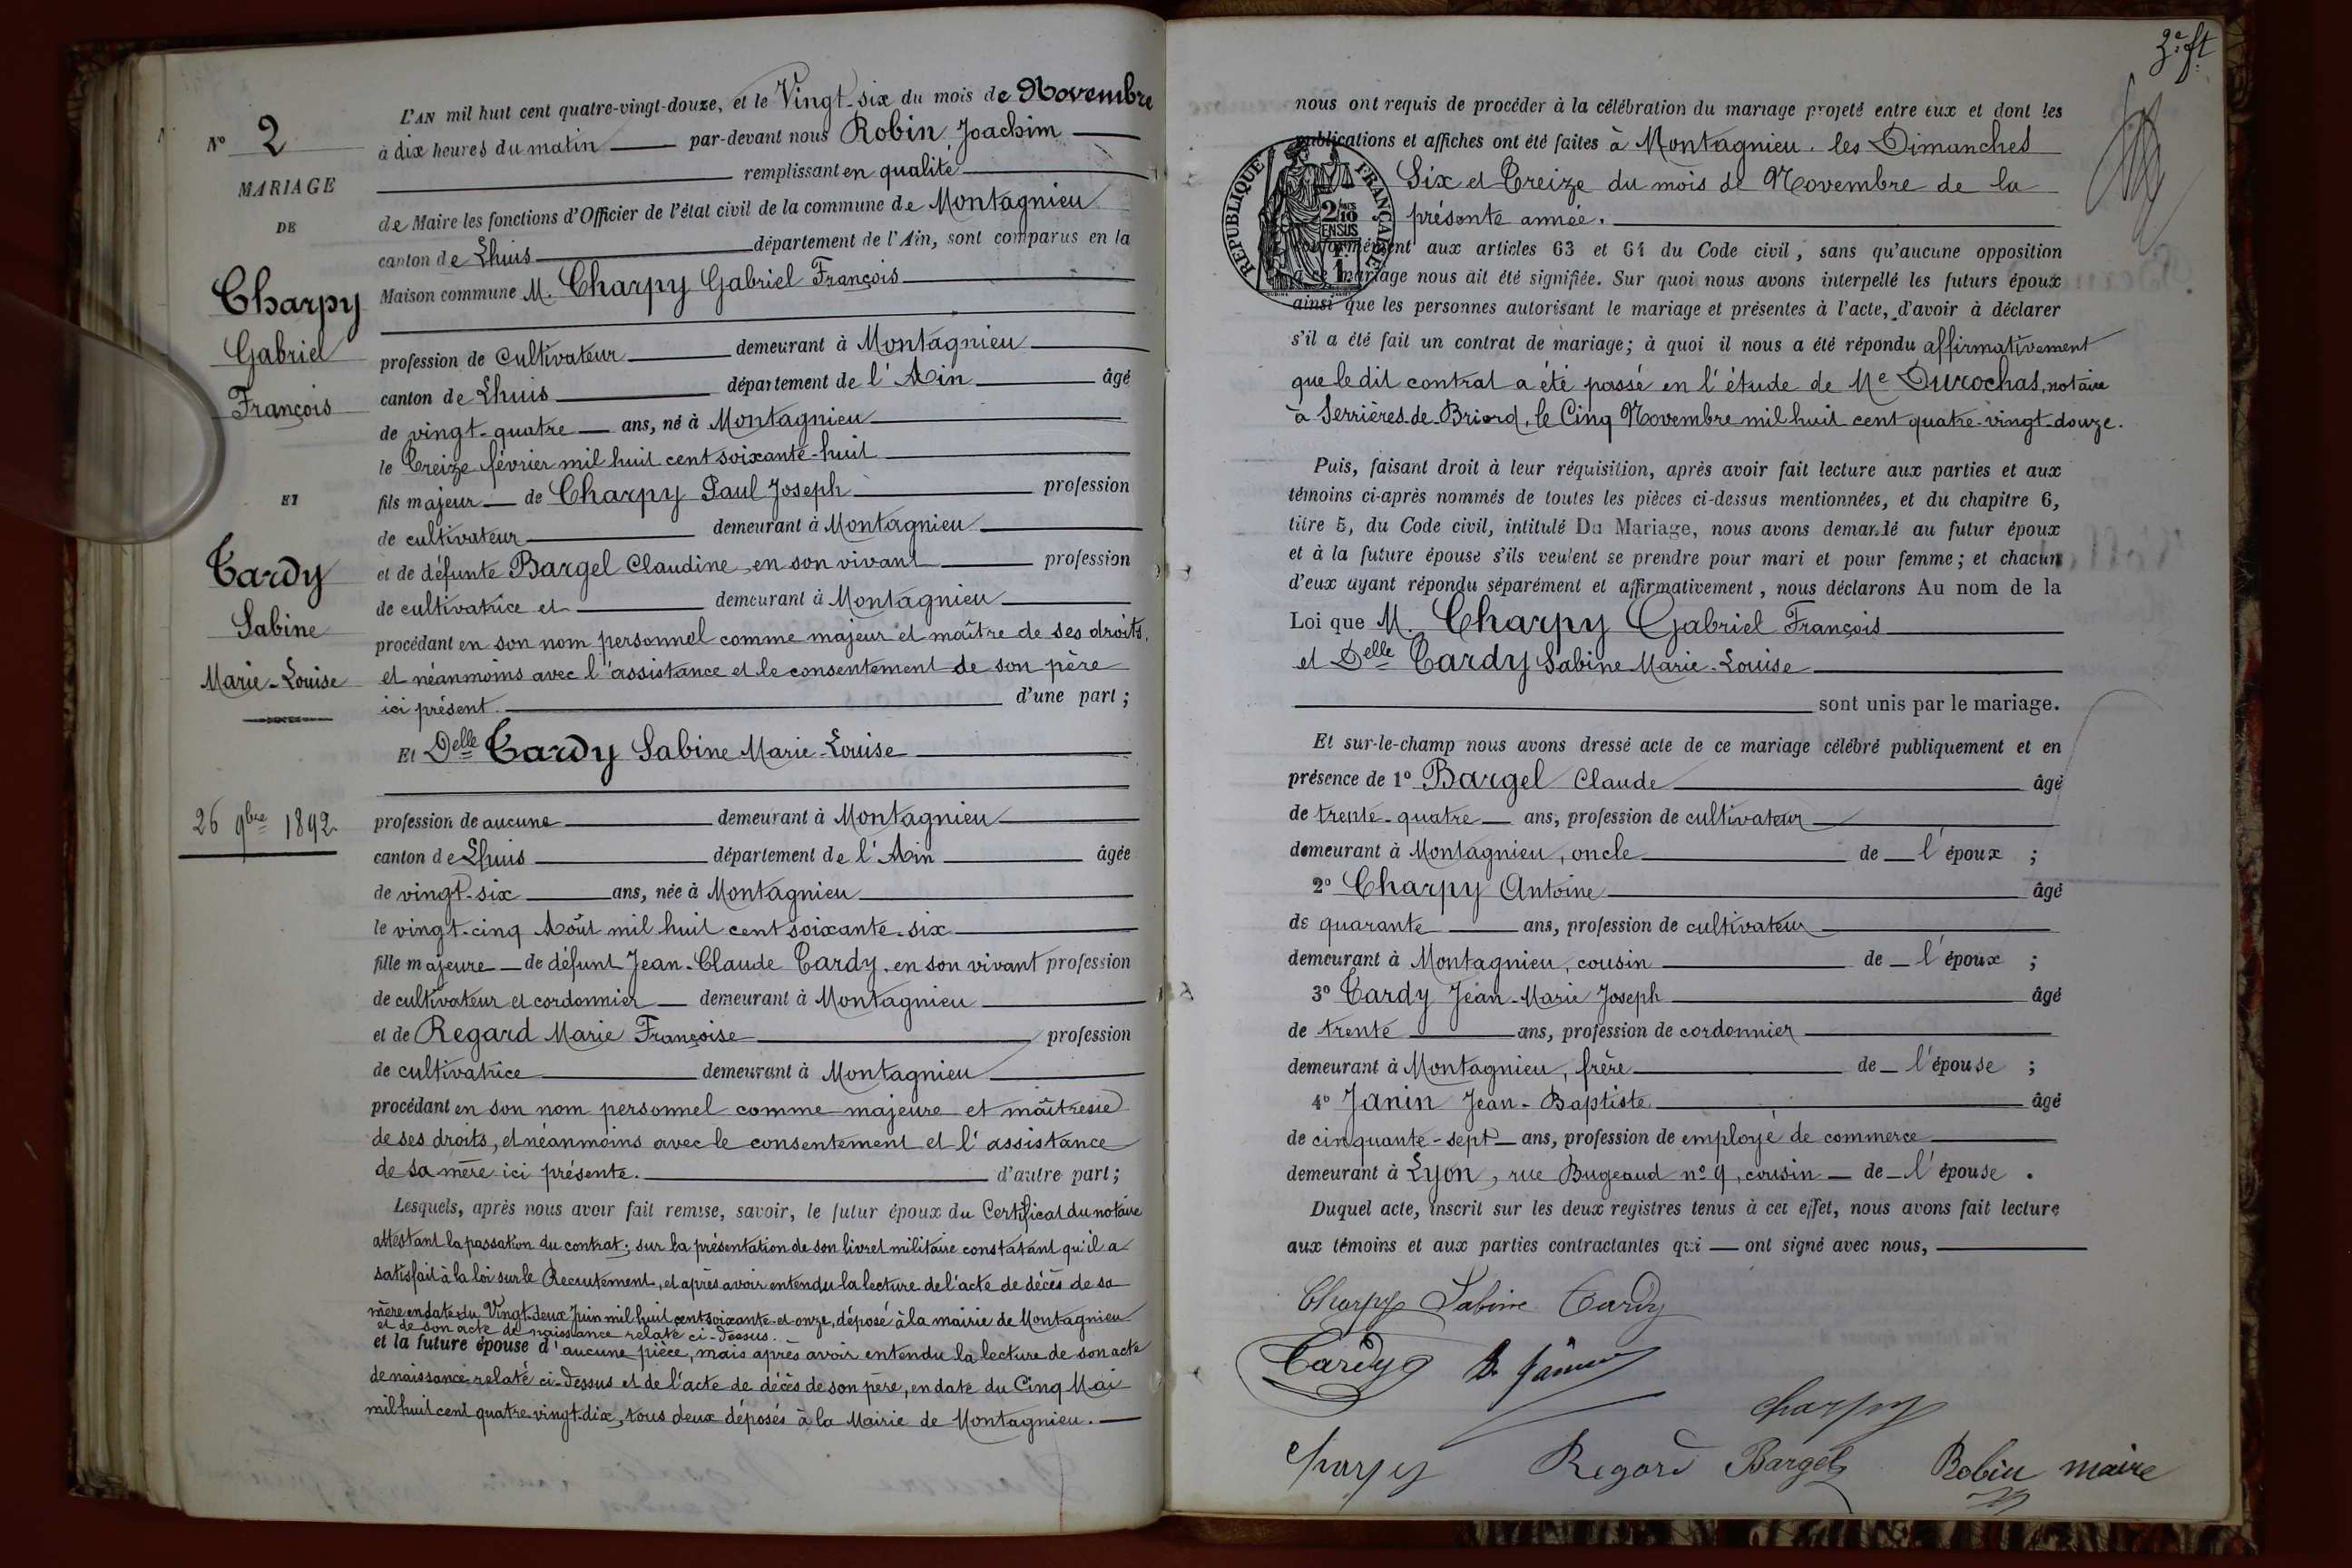 N° 2
MARIAGE
DE
Charpy
Gabriel
François
ET
Tardy
Sabine
Marie-Louise
26 9bre 1892
L'AN mil huit cent quatre-vingt-douze, et le Vingt-six du mois de Novembre
à dix heures du matin par-devant nous Robin Joachim
remplissant en qualité
de Maire les fonctions d'Officier de l'état civil de la commune de Montagnieu
canton de Lhuis département de l'Ain, sont comparus en la
Maison commune M. Charpy Gabriel François
profession de cultivateur demeurant à Montagnieu
canton de Lhuis département de l'Ain âgé
de vingt-quatre ans, né à Montagnieu
le Treize février mil huit cent soixante-huit
fils majeur de Charpy Paul Joseph profession
de cultivateur demeurant à Montagnieu
et de défunte Bargel Claudine, en son vivant profession
de cultivatrice et demeurant à Montagnieu
procédant en son nom personnel comme majeur et maître de ses droits,
et néanmoins avec l'assistance et le consentement de son père
ici présent. d'une part;
Et Delle Tardy Sabine Marie-Louise
profession de aucune demeurant à Montagnieu
canton de Lhuis département de l'Ain âgée
de vingt-six ans, née à Montagnieu
le vingt-cinq Août mil huit cent soixante-six
fille majeure de défunt Jean-Claude Tardy, en son vivant profession
de cultivateur et cordonnier demeurant à Montagnieu
et de Regard Marie Françoise profession
de cultivatrice demeurant à Montagnieu
procédant en son nom personnel comme majeure et maîtresse
de ses droits, et néanmoins avec le consentement et l'assistance
de sa mère ici présente. d'autre part;
Lesquels, après nous avoir fait remise, savoir, le futur époux du Certificat du notaire
attestant la passation du contrat; sur la présentation de son livret militaire constatant qu'il a
satisfait à la loi sur le Recrutement, et après avoir entendu la lecture de l'acte de décès de sa
mère en date du Vingt-deux Juin mil huit cent soixante-et-onze, déposé à la mairie de Montagnieu
et de son acte de naissance relaté ci-dessus.
et la future épouse d'aucune pièce, mais après avoir entendu la lecture de son acte
de naissance relaté ci-dessus et de l'acte de décès de son père, en date du Cinq Mai
mil huit cent quatre-vingt-dix, tous deux déposés à la Mairie de Montagnieu.
nous ont requis de procéder à la célébration du mariage projeté entre eux et dont les
publications et affiches ont été faites à Montagnieu. les Dimanches
Six et Treize du mois de Novembre de la
présente année.
conformément aux articles 63 et 64 du Code civil, sans qu'aucune opposition
à ce mariage nous ait été signifiée. Sur quoi nous avons interpellé les futurs époux
ainsi que les personnes autorisant le mariage et présentes à l'acte, d'avoir à déclarer
s'il a été fait un contrat de mariage; à quoi il nous a été répondu affirmativement
que le dit contrat a été passé en l'étude de Me Durochat, notaire
à Serrières-de-Briord, le Cinq Novembre mil huit cent quatre-vingt-douze.
Puis, faisant droit à leur réquisition, après avoir fait lecture aux parties et aux
témoins ci-après nommés de toutes les pièces ci-dessus mentionnées, et du chapitre 6,
titre 5, du Code civil, intitulé Du Mariage, nous avons demandé au futur époux
et à la future épouse s'ils veulent se prendre pour mari et pour femme; et chacun
d'eux ayant répondu séparément et affirmativement, nous déclarons Au nom de la
Loi que M. Charpy Gabriel François
et Delle Tardy Sabine Marie-Louise
sont unis par le mariage.
Et sur-le-champ nous avons dressé acte de ce mariage célébré publiquement et en
présence de 1° Bargel Claude âgé
de trente-quatre ans, profession de cultivateur
demeurant à Montagnieu, oncle de l'époux ;
2° Charpy Antoine âgé
de quarante ans, profession de cultivateur
demeurant à Montagnieu, cousin de l'époux ;
3° Tardy Jean-Marie Joseph âgé
de trente ans, profession de cordonnier
demeurant à Montagnieu, frère de l'épouse ;
4° Janin Jean-Baptiste âgé
de cinquante-sept ans, profession de employé de commerce
demeurant à Lyon, rue Bugeaud n° 9, cousin de l'épouse.
Duquel acte, inscrit sur les deux registres tenus à cet effet, nous avons fait lecture
aux témoins et aux parties contractantes qui ont signé avec nous,
Charpy Sabine Tardy
Tardy
Charpy
Charpy Regard Bargel Robin maire
RÉPUBLIQUE FRANÇAISE
2/10 EN SUS